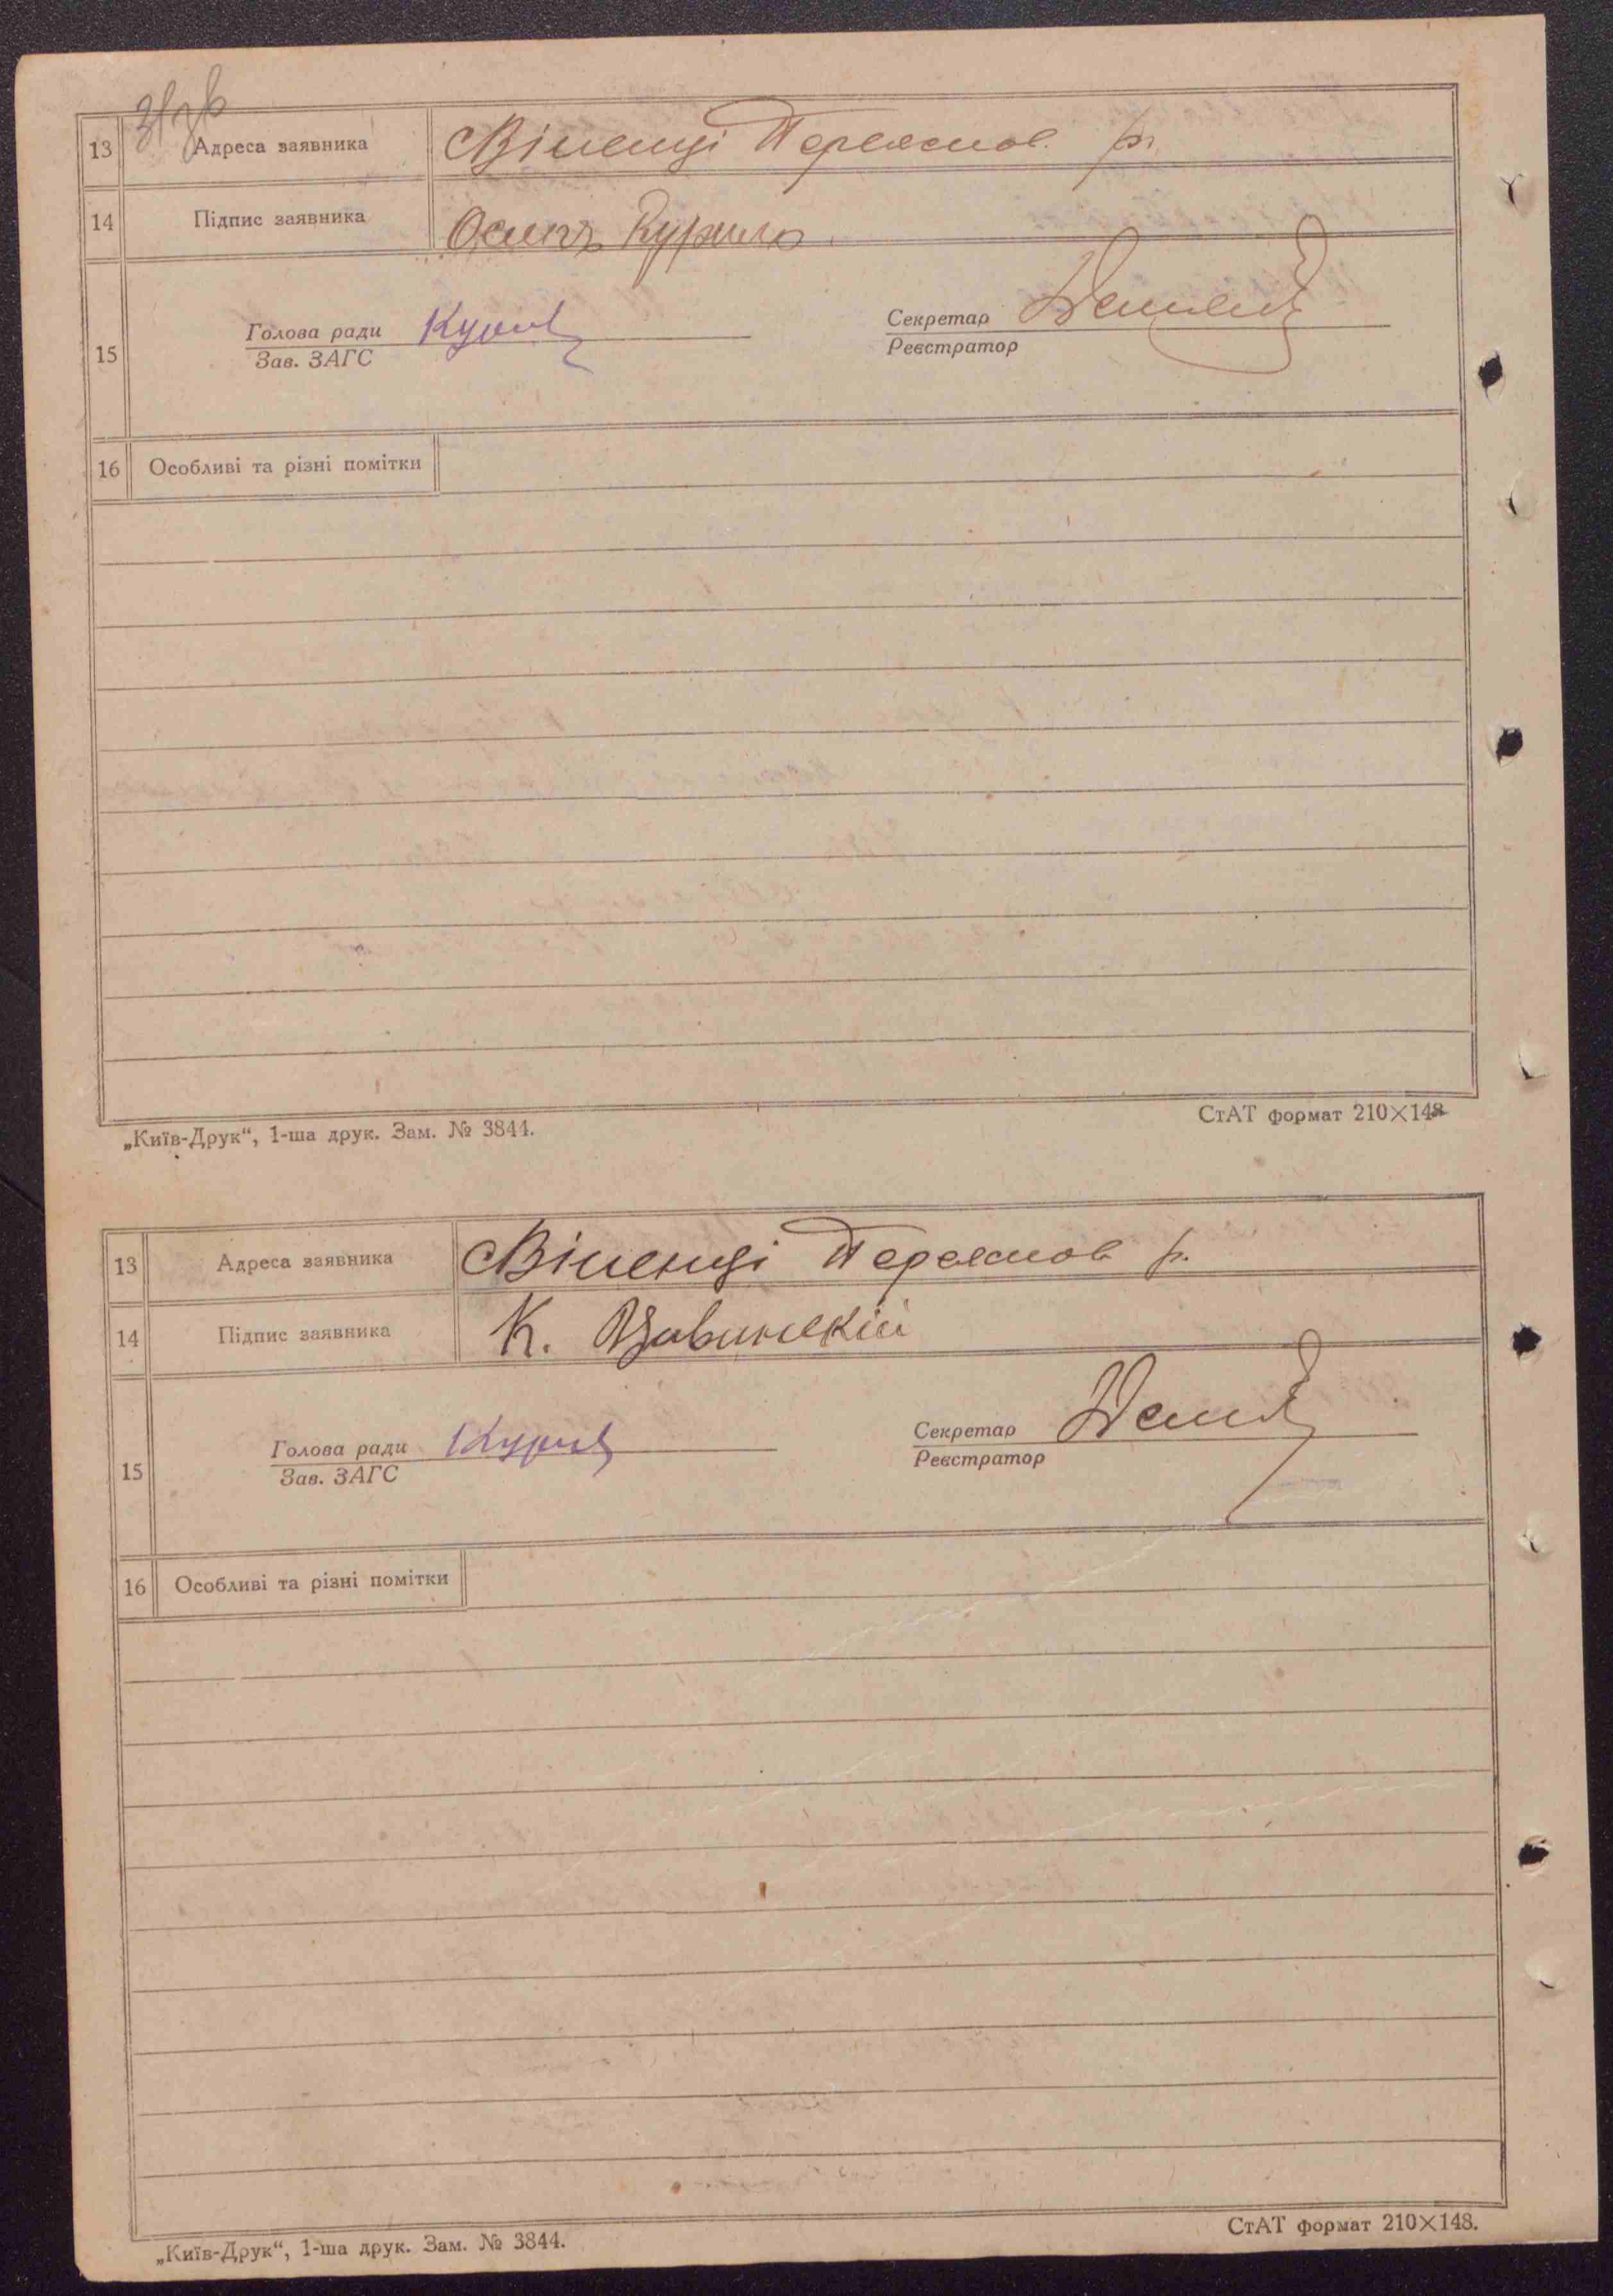 13 Адреса заявника Віненці Переяслов. р.
14 Підпис заявника Осипъ Курило
15 Голова ради Секретар
Зав. ЗАГС Реєстратор
16 Особливі та різні помітки
„Київ-Друк“, 1-ша друк. Зам. № 3844. СтАТ формат 210×148
13 Адреса заявника Віненці Переяслов р.
14 Підпис заявника К.
15 Голова ради Секретар
Зав. ЗАГС Реєстратор
16 Особливі та різні помітки
„Київ-Друк“, 1-ша друк. Зам. № 3844. СтАТ формат 210×148.